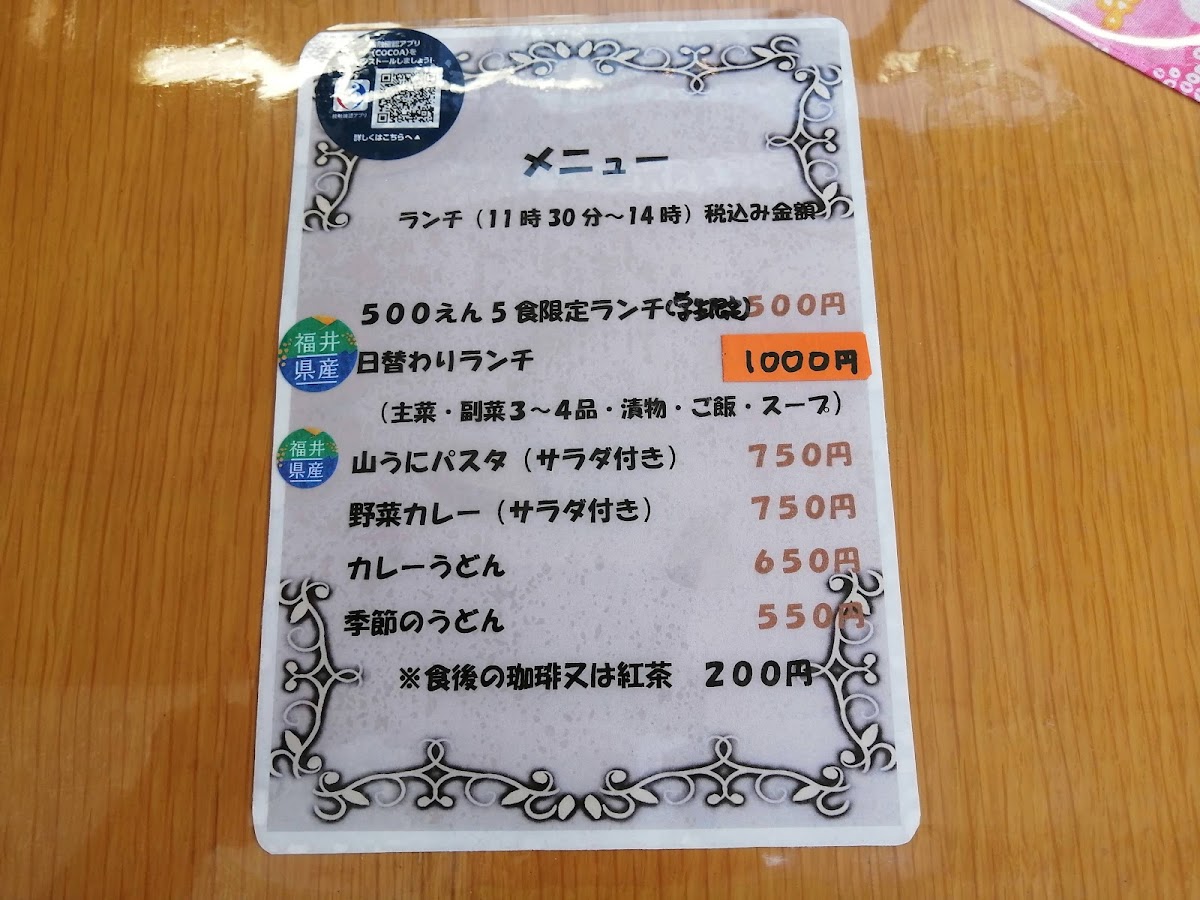 認アプリ
(COCOA)を
ストールしましょう!
接触確認アプリ
詳しくはこちらへ▲
メニュー
ランチ（11時30分～14時）税込み金額
500えん5食限定ランチ(学生限定) 500円
福井県産 日替わりランチ 1000円
（主菜・副菜3～4品・漬物・ご飯・スープ）
福井県産 山うにパスタ（サラダ付き） 750円
野菜カレー（サラダ付き） 750円
カレーうどん 650円
季節のうどん 550円
※食後の珈琲又は紅茶 200円